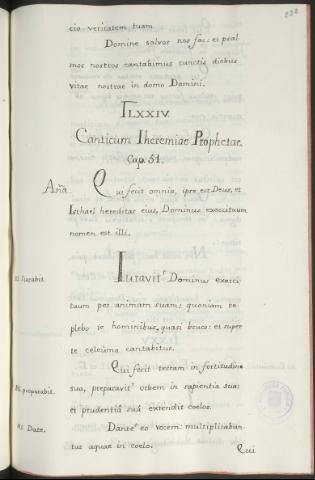 232
cio veritatem tuam
Domine salvos nos fac: et psal
mos nostros cantabimus cunctis diebus
vitae nostrae in domo Domini.
LXXIV.
Canticum Iheremiae Prophetae.
Cap. 51.
Aña. Qui fecit omnia, ipse est Deus, et
Isrhael hereditas eius, Dominus exercituum
nomen est illi.
al. Iurabit. Iuravit Dominus exerci
tuum per animam suam: quoniam re
plebo te hominibus, quasi bruco: et super
te celeuma cantabitur.
Qui fecit terram in fortitudine
al. preparabit. sua, preparavit orbem in sapientia sua:
et prudentiâ suâ extendit coelos.
al. Date. Dante eo vocem: multiplicabun
tur aquae in coelo.
Qui